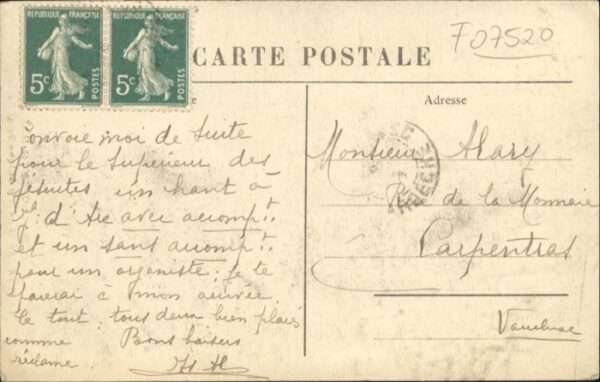 REPUBLIQUE FRANÇAISE
5c
POSTES
REPUBLIQUE FRANÇAISE
5c
POSTES
CARTE POSTALE
F07520
Adresse
envoie moi de suite
pour le Supérieur des
jésuites un chant à
J. d'Arc avec accompt.
et un sans accompt.
pour un organiste; je te
paierai à mon arrivée
le tout. tous deux bien placés
comme Bons baisers
réclame.
Monsieur Alary
Rue de la Monnaie
Carpentras
Vaucluse